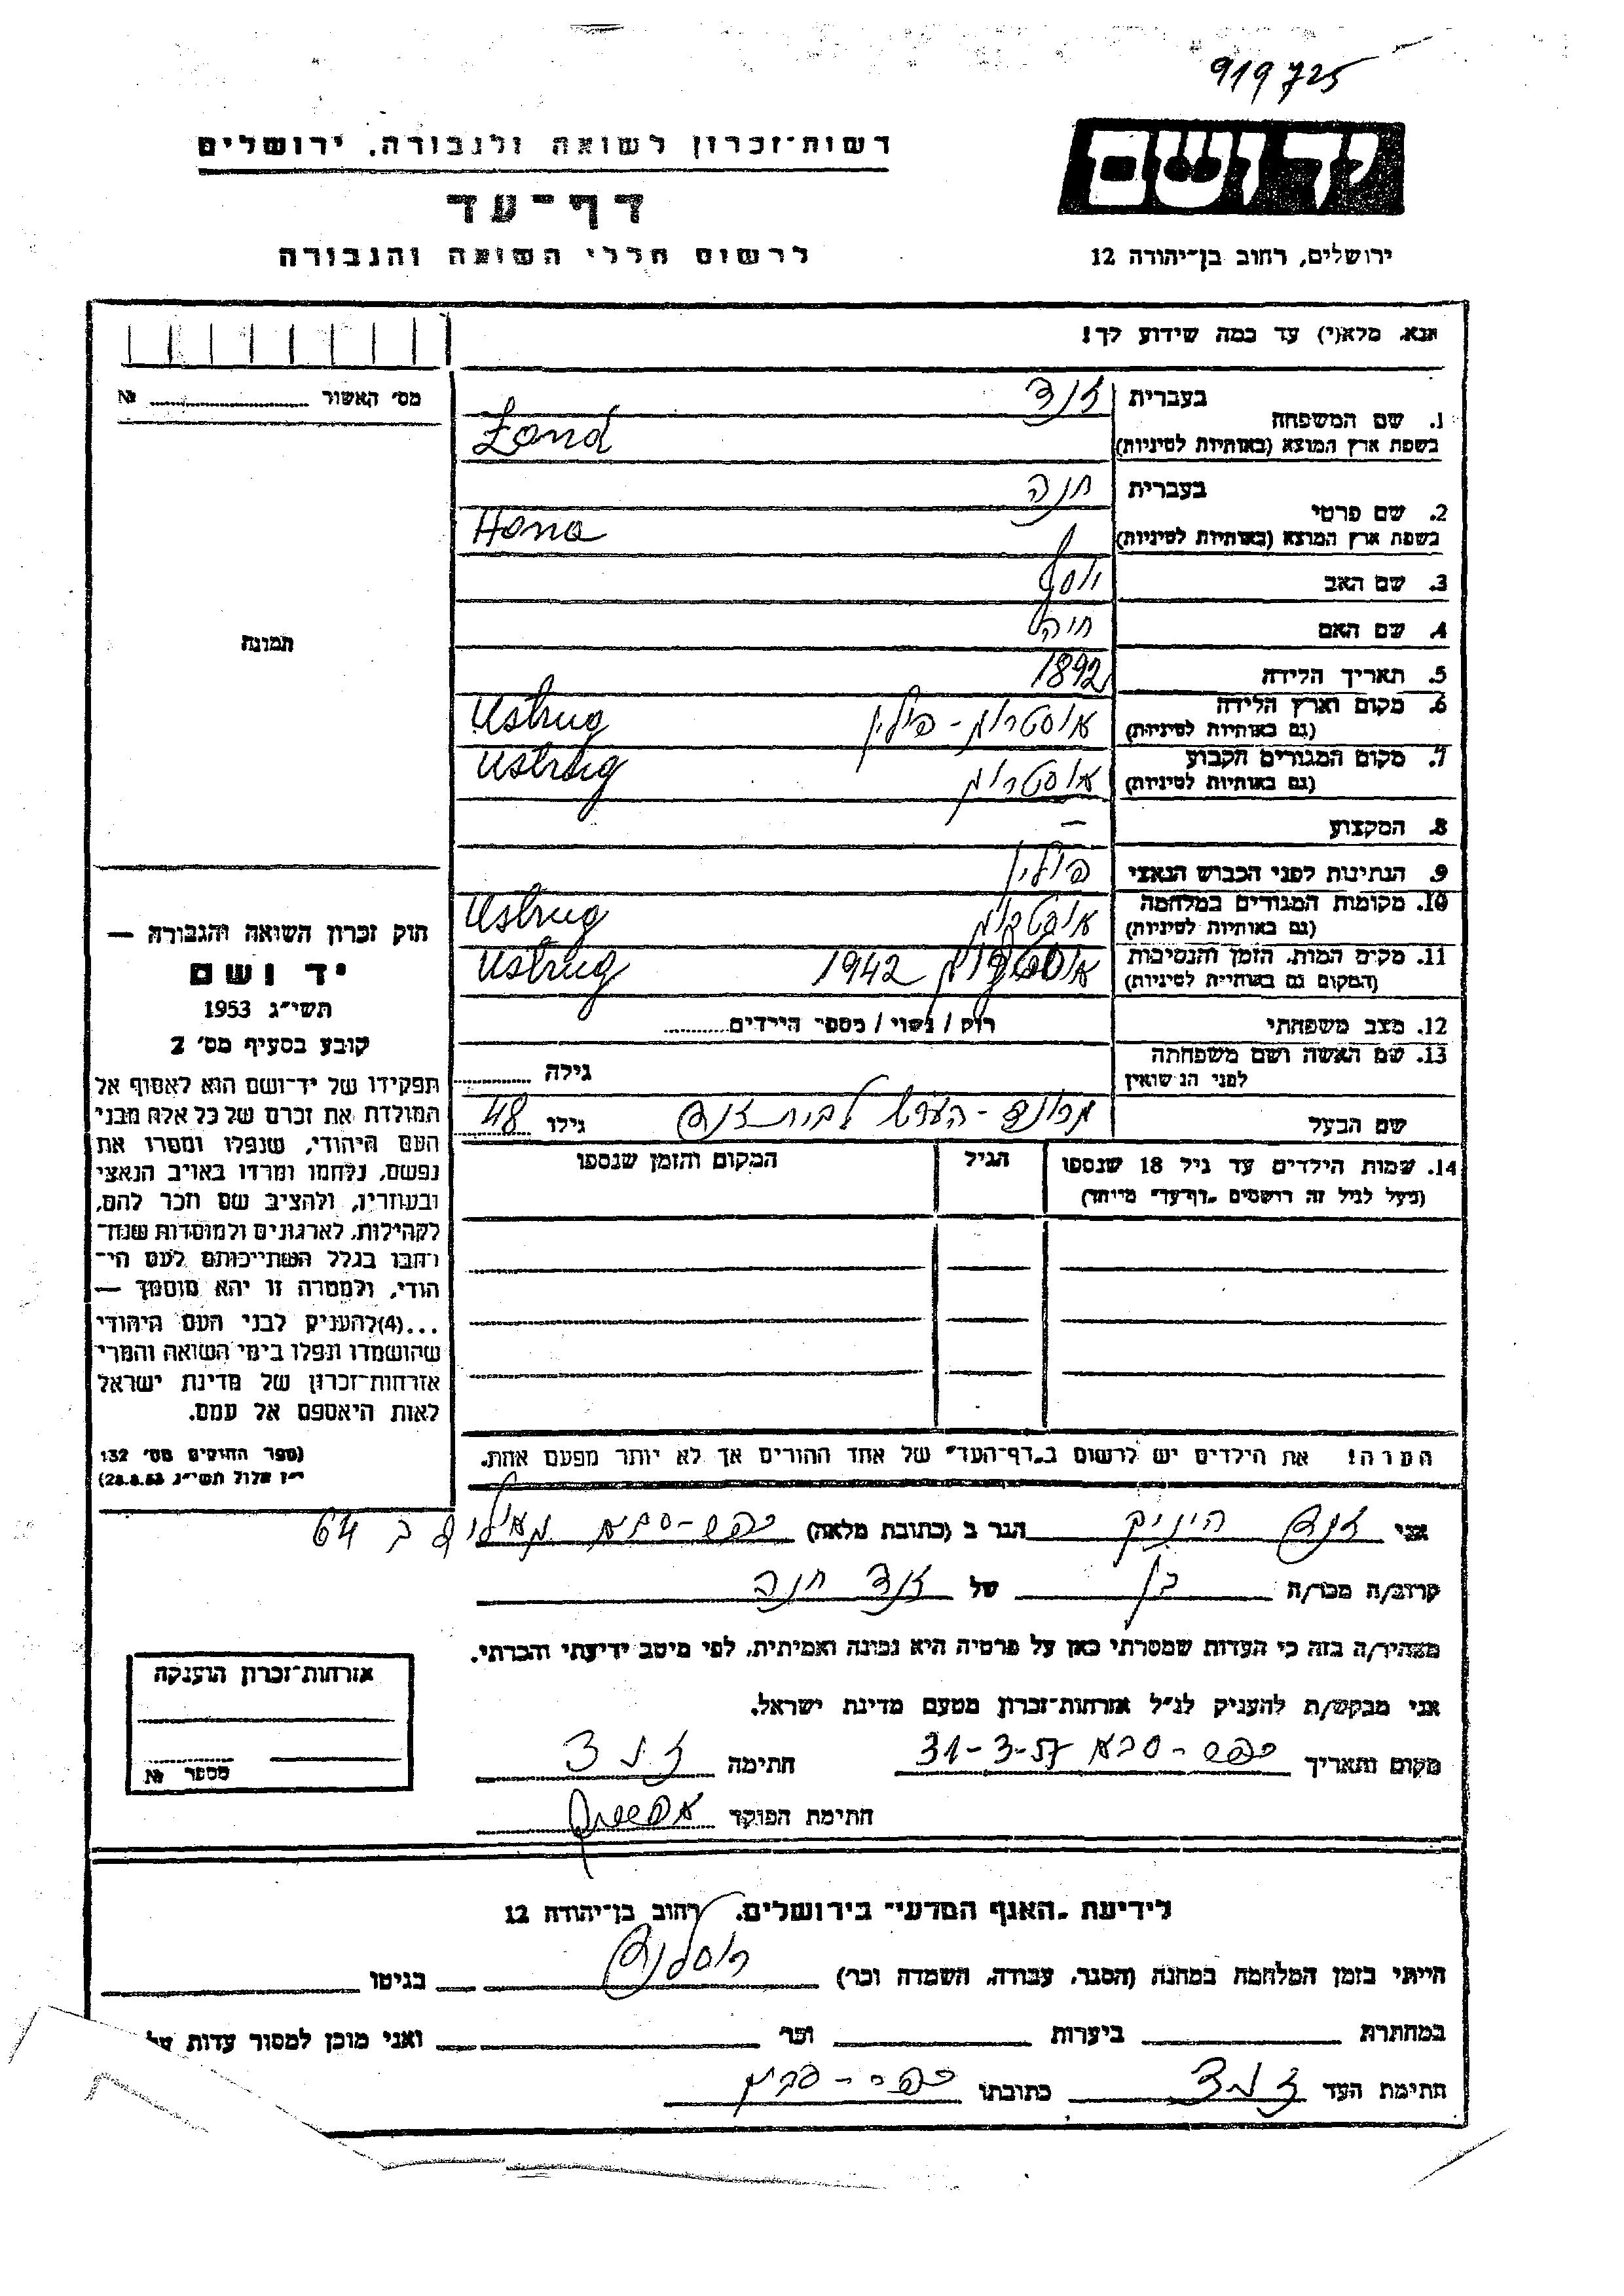 919725
רשות־זכרון לשואה ולגבורה, ירושלים
יד ושם
דף־עד
לרשום חללי השואה והגבורה
ירושלים, רחוב בן־יהודה 12
אנא, מלא(י) עד כמה שידוע לך!
מס' האשור № 
1. שם המשפחה בעברית זנד
בשפת ארץ המוצא (באותיות לטיניות) Zand
2. שם פרטי בעברית חנה
בשפת ארץ המוצא (באותיות לטיניות) Hana
3. שם האב יוסף
4. שם האם חיה
5. תאריך הלידה 1892
6. מקום וארץ הלידה אוסטרוג - פולין Ustrug
(גם באותיות לטיניות)
7. מקום המגורים הקבוע אוסטרוג Ustrug
(גם באותיות לטיניות)
8. המקצוע –
9. הנתינות לפני הכבוש הנאצי פולין
10. מקומות המגורים במלחמה אוסטרוג Ustrug
(גם באותיות לטיניות)
11. מקום המות, הזמן והנסיבות אוסטרוג 1942 Ustrug
(המקום גם באותיות לטיניות)
12. מצב משפחתי רווק / נשוי / מספר הילדים
13. שם האשה ושם משפחתה
לפני הנישואין גילה
שם הבעל לבית זנד גילו 48
14. שמות הילדים עד גיל 18 שנספו הגיל המקום והזמן שנספו
(מעל לגיל זה רושמים „דף־עד" מיוחד)
תמונה
חוק זכרון השואה והגבורה —
יד ושם
תשי״ג 1953
קובע בסעיף מס' 2
תפקידו של יד־ושם הוא לאסוף אל
המולדת את זכרם של כל אלה מבני
העם היהודי, שנפלו ומסרו את
נפשם, נלחמו ומרדו באויב הנאצי
ובעוזריו, ולהציב שם וזכר להם,
לקהילות, לארגונים ולמוסדות שנח־
רבו בגלל השתייכותם לעם הי־
הודי, ולמטרה זו יהא מוסמך —
...(4) להעניק לבני העם היהודי
שהושמדו ונפלו בימי השואה והמרי
אזרחות־זכרון של מדינת ישראל
לאות היאספם אל עמם.
(ספר החוקים מס' 132
י״ז אלול תשי״ג 28.8.53)
הערה! את הילדים יש לרשום ב„דף־העד" של אחד ההורים אך לא יותר מפעם אחת.
אני זנד הגר ב (כתובת מלאה) כפר-סבא ב 64
קרוב/ה מכר/ה בן של זנד חנה
מצהיר/ה בזה כי העדות שמסרתי כאן על פרטיה היא נכונה ואמיתית, לפי מיטב ידיעתי והכרתי.
אני מבקש/ת להעניק לנ״ל אזרחות־זכרון מטעם מדינת ישראל.
מקום ותאריך כפר-סבא 31-3-57 חתימה זנד
חתימת הפוקד
אזרחות־זכרון הוענקה
מספר №
לידיעת „האגף המדעי" בירושלים, רחוב בן־יהודה 12
הייתי בזמן המלחמה במחנה (הסגר, עבודה, השמדה וכו') רוסלנד בגיטו
במחתרת ביערות וכו' ואני מוכן למסור עדות על
חתימת העד זנד כתובתו כפר-סבא